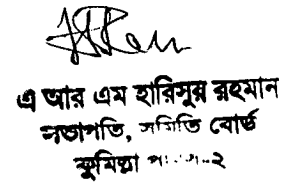 এ আর এম হারিসুর রহমান
সভাপতি, সমিতি বোর্ড
কুমিল্লা